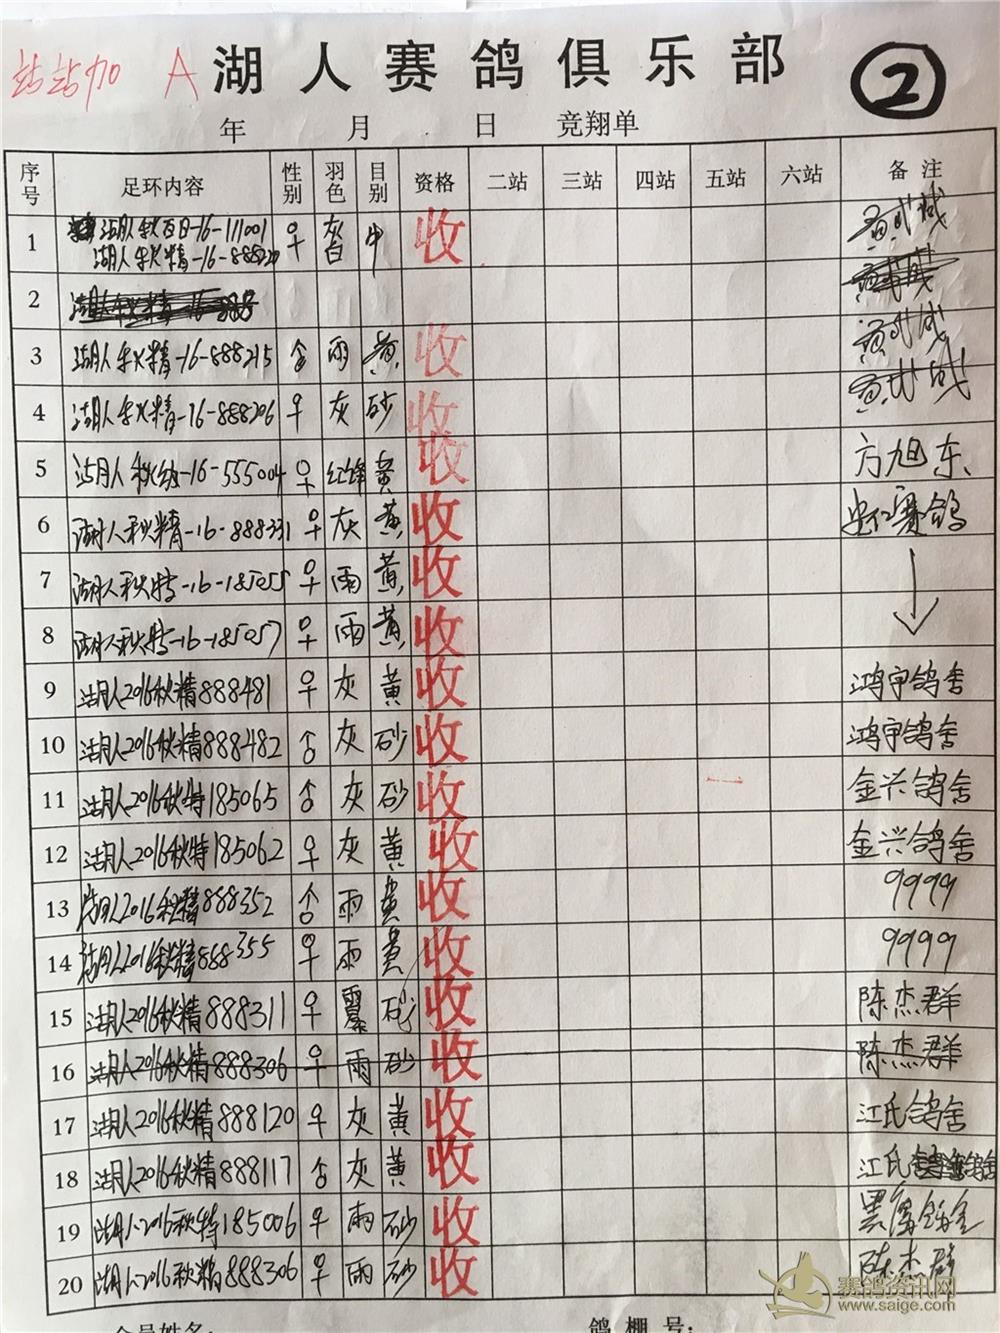 站站加 A 湖人赛鸽俱乐部 2
年 月 日 竞翔单
序号 足环内容 性别 羽色 目别 资格 二站 三站 四站 五站 六站 备注
1 湖人秋百日-16-111001 ♀ 灰白 牛 收
湖人秋精-16-888220
2
3 湖人秋精-16-888215 雨 黄 收
4 湖人秋精-16-888206 ♀ 灰 砂 收
5 湖人秋-16-555004 ♀ 红绛 黄 收 方旭东
6 湖人秋精-16-888331 ♀ 灰 黄 收 赛鸽
7 湖人秋特-16-185055 ♀ 雨 黄 收
8 湖人秋特-16-185057 ♀ 雨 黄 收
9 湖人2016秋精888481 ♀ 灰 黄 收 鸿宇鸽舍
10 湖人2016秋精888482 灰 砂 收 鸿宇鸽舍
11 湖人2016秋特185065 灰 砂 收 一 金兴鸽舍
12 湖人2016秋特185062 ♀ 灰 黄 收 金兴鸽舍
13 湖人2016秋精888352 雨 黄 收 9999
14 湖人2016秋精888355 ♀ 雨 黄 收 9999
15 湖人2016秋精888311 ♀ 砂 收 陈杰群
16 湖人2016秋精888306 ♀ 雨 砂 收 陈杰群
17 湖人2016秋精888120 ♀ 灰 黄 收 江氏鸽舍
18 湖人2016秋精888117 灰 黄 收 江氏鸽舍
19 湖人2016秋特185006 ♀ 雨 砂 收
20 湖人2016秋精888306 ♀ 雨 砂 收 陈杰群
会员姓名: 鸽棚号:
赛鸽资讯网
www.saige.com